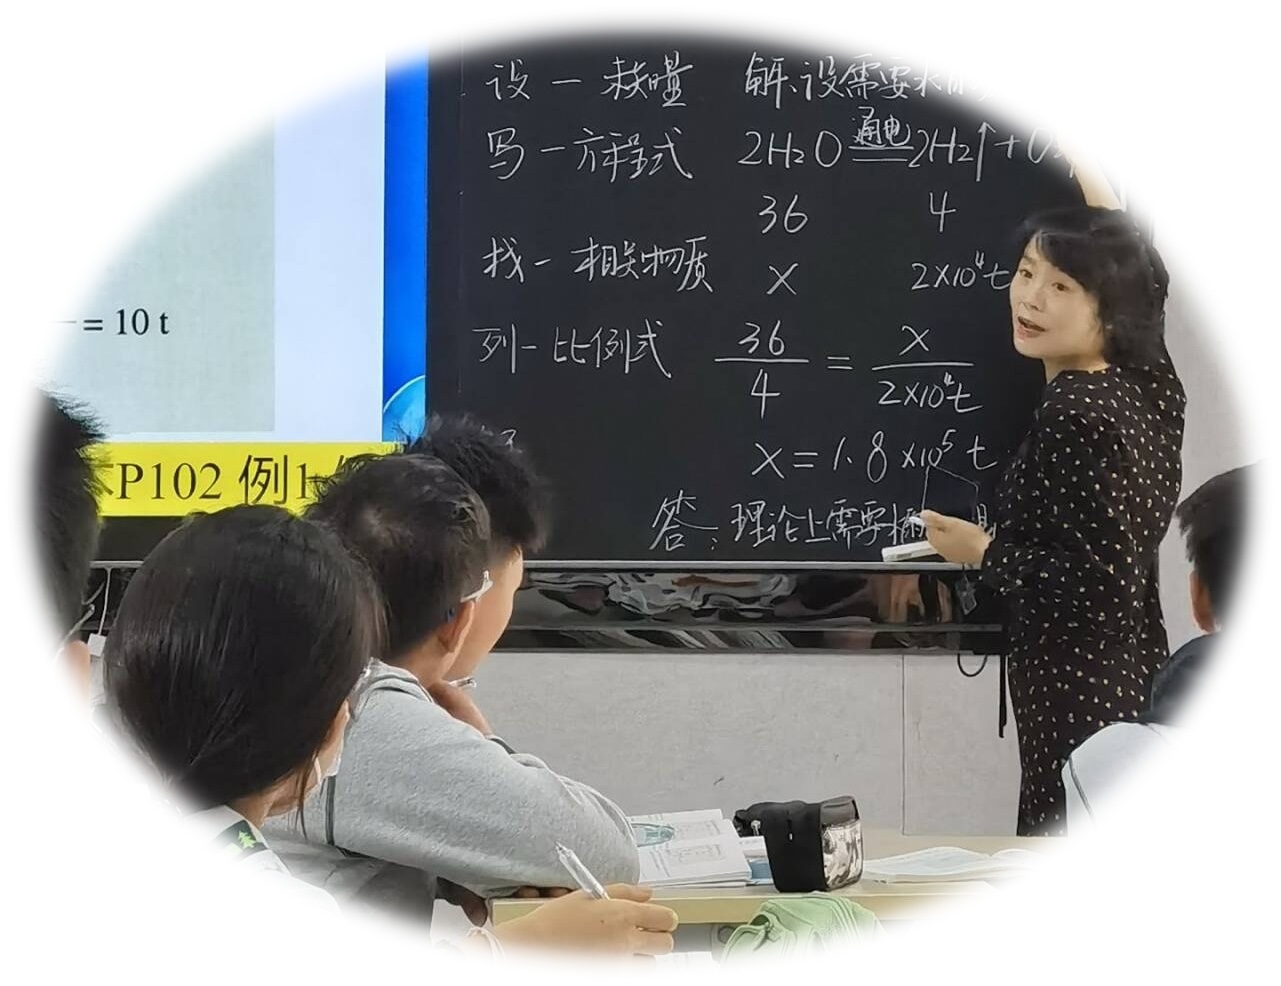 = 10 t
P102 例1
设一未知量 解：设需要水的
写一方程式 2H₂O 通电 2H₂↑+O₂
36 4
找一相关物质 x 2×10⁴t
列一比例式 36/4 = x/2×10⁴t
x=1.8×10⁵ t
答：理论上需要